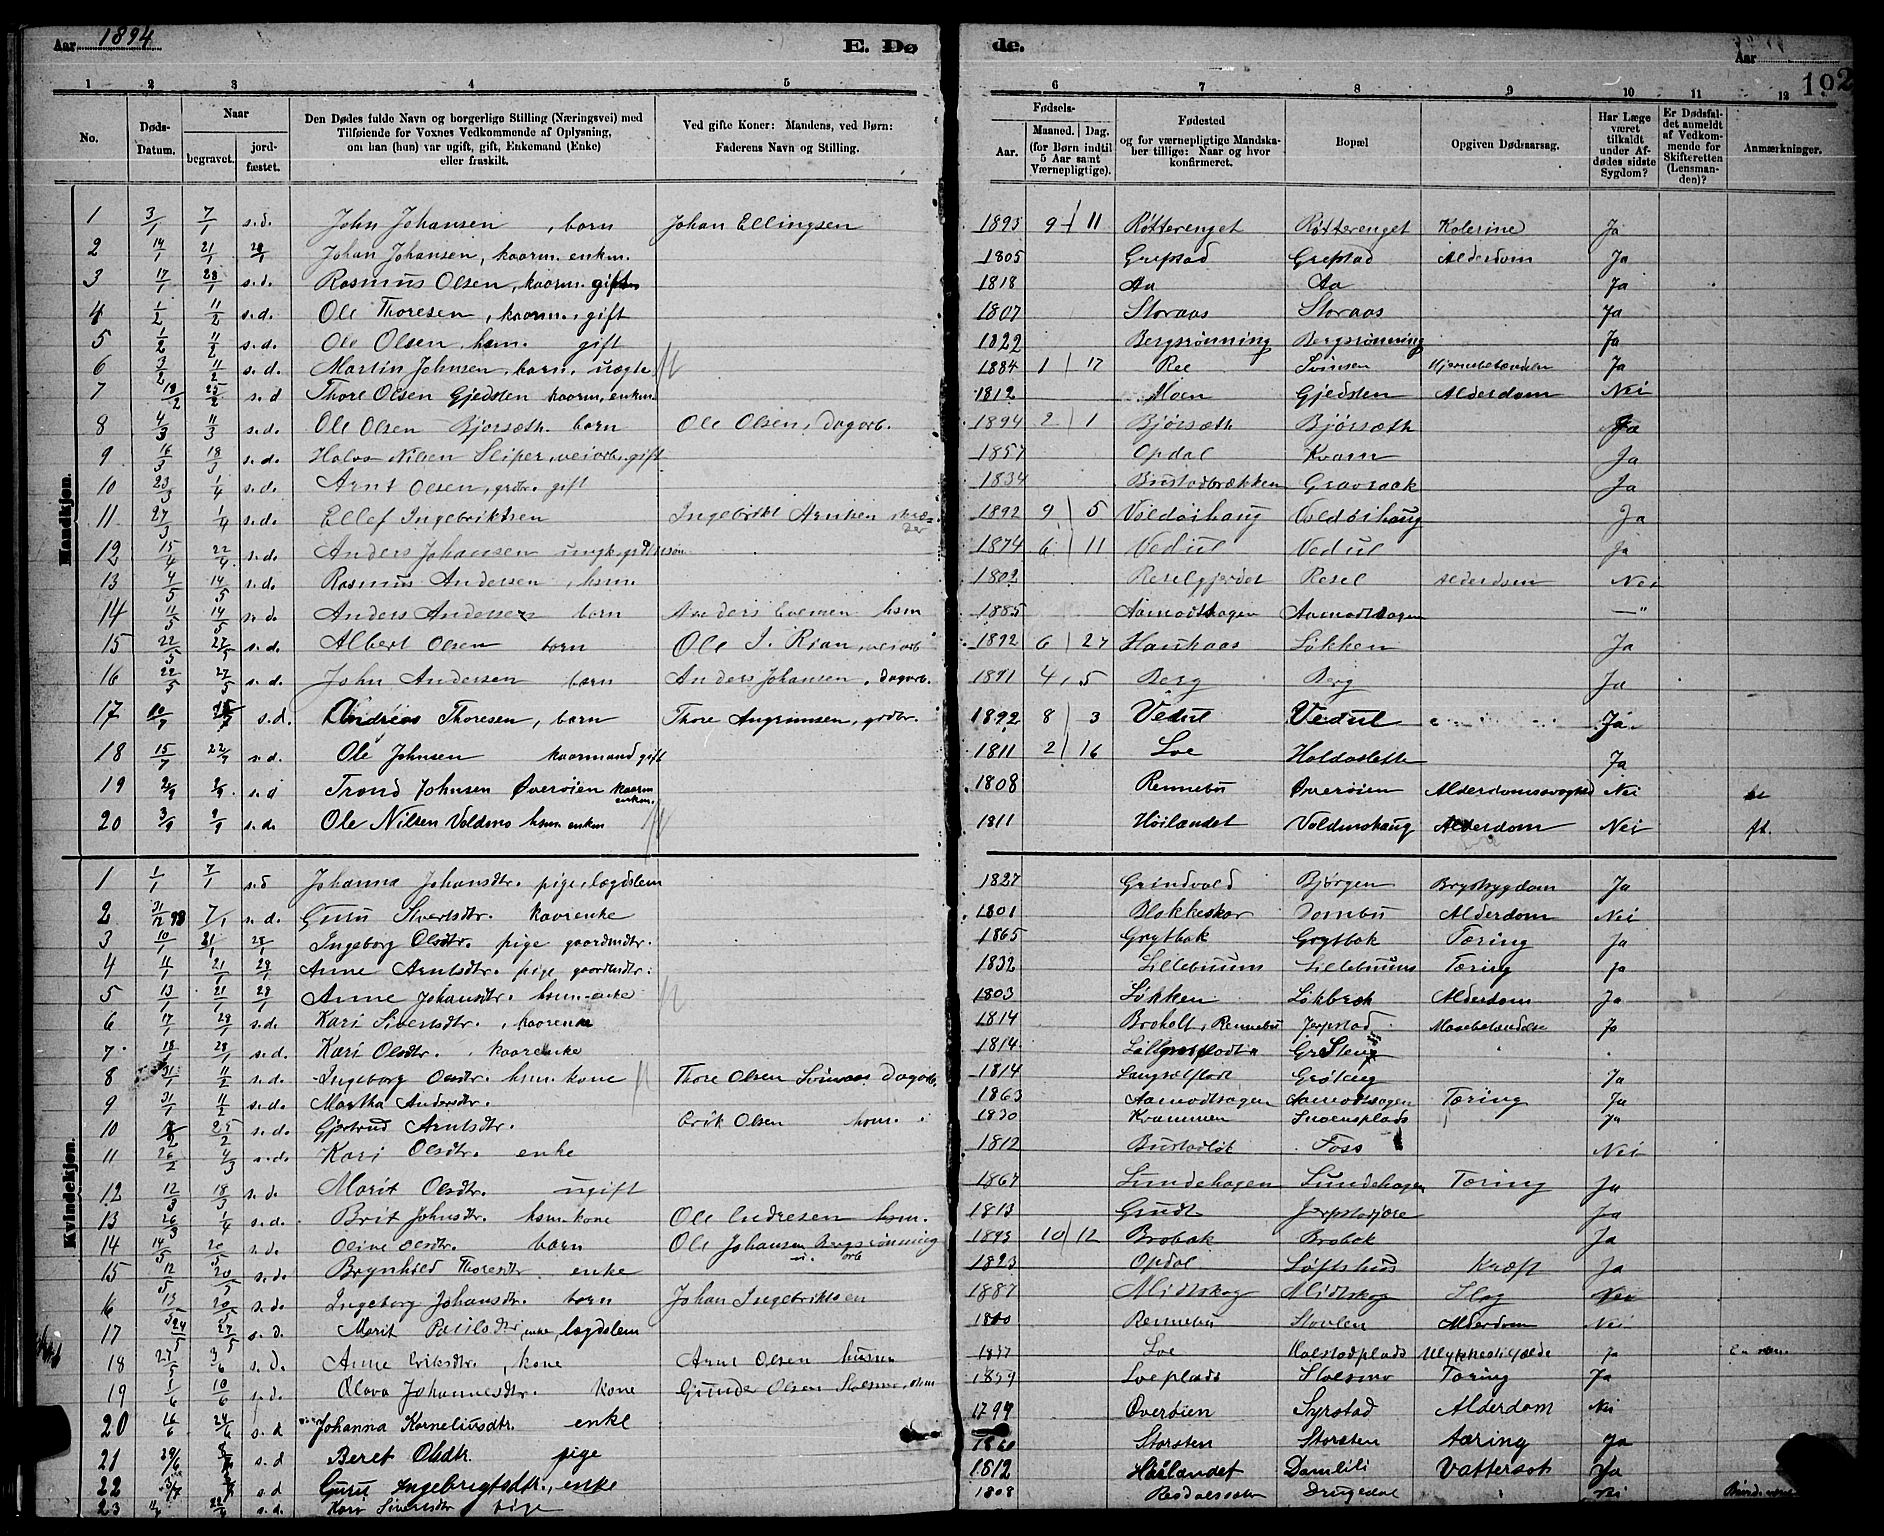 Aar 1894
E. Døde.
Aar
192
1 2 3 4 5 6 7 8 9 10 11 12
No.
Døds-Datum.
Naar
begravet.
jordfæstet.
Den Dødes fulde Navn og borgerlige Stilling (Næringsvei) med
Tilføiende for Voxnes Vedkommende af Oplysning,
om han (hun) var ugift, gift, Enkemand (Enke)
eller fraskilt.
Ved gifte Koner: Mandens, ved Børn:
Faderens Navn og Stilling.
Fødsels-
Aar.
Maaned. Dag.
(for Børn indtil
5 Aar samt
Værnepligtige).
Fødested
og for værnepligtige Mandska-
ber tillige: Naar og hvor
konfirmeret.
Bopæl
Opgiven Dødsaarsag.
Har Læge
været
tilkaldt
under Af-
dødes sidste
Sygdom?
Er Dødsfal-
det anmeldt
af Vedkom-
mende for
Skifteretten
(Lensman-
den)?
Anmærkninger.
Mandkjøn.
1 3/1 7/1 s.d. John Johansen, barn Johan Ellingsen 1893 9 11 Røtterenget Røtterenget Kolerine Ja
2 14/1 21/1 28/1 Johan Johansen, kaarm. enkm. 1805 Grefstad Grefstad Alderdom Ja
3 17/1 28/1 s.d. Rasmus Olsen, kaarm. gift 1818 Aa Aa Ja
4 1/2 11/2 s.d. Ole Thoresen, kaarm., gift 1807 Storaas Storaas Ja
5 1/2 11/2 s.d. Ole Olsen, hsm. gift 1822 Bergsrønning Bergsrønning Ja
6 3/2 11/2 s.d. Martin Johnsen, barn, uægte 1884 1 17 Ree Svinsen Ja
7 18/2 25/2 s.d Thore Olsen Gjedsten kaarm. enkm. 1812 Moen Gjedsten Alderdom Nei
8 4/3 11/3 s.d. Ole Olsen Bjørsæth barn Ole Olsen, Dagarb. 1894 2 1 Bjørsæth Bjørsæth Ja
9 16/3 18/3 s.d. Halvo Nilsen Sliper, veiarb. gift 1857 Opdal Kvam Ja
10 23/3 1/4 s.d. Arnt Olsen, grdbr. gift 1834 Bustadbrækken Gravraak Ja
11 27/3 1/4 s.d. Ellef Ingebriktsen Ingebrikt Arntsen skræder 1892 9 5 Voldøihaug Voldøihaug Ja
12 15/4 22/4 s.d. Anders Johansen ungk. grdmsøn 1874 6 11 Vedul Vedul Ja
13 4/5 14/5 s.d. Rasmus Andersen, hsm. 1802 Reselgjerdet Resel Alderdom Nei
14 11/5 14/5 s.d. Anders Andersen barn Anders Evensen hsm 1885 Aamodthagen Aamodthagen —"
15 22/5 27/5 s.d. Albert Olsen barn Ole J. Rian, veiarb 1892 6 27 Haukaas Løkken Ja
16 22/5 27/5 s.d. John Andersen barn Anders Johansen, Dagarb. 1891 4 5 Berg Berg Ja
17 s.d. Andreas Thoresen, barn Thore Angrimsen, grdbr. 1892 8 3 Vedul Vedul Ja
18 15/7 22/7 s.d. Ole Johnsen kaarmand gift 1811 2 16 Loe Holdasletta Ja
19 s.d Trond Johnsen Øverøien kaarm. enkm. 1808 Rennebu Øverøien Alderdomssvaghed Nei
20 3/9 9/9 s.d. Ole Nilsen hsm. enkm 1811 Høilandet Alderdom Nei fat.
Kvindekjøn.
1 1/1 7/1 s.d Johanna Johansdtr. pige, lægdslem 1827 Grindvold Bjørgen Brystsygdom Ja
2 31/12 93 7/1 s.d. Guru Sivertsdtr. kaarenke 1801 Blokkeskar Alderdom Nei
3 10/1 21/1 28/1 Ingeborg Olsdtr. pige gaardmdtr. 1865 Grytbak Grytbak Tæring Ja
4 11/1 21/1 28/1 Anne Arntsdtr. pige gaardmdtr. 1832 Lillebuums Lillebuums Tæring Ja
5 13/1 21/1 28/1 Anne Johansdtr. hsm. enke 1803 Løkken Løkbræk Alderdom Ja
6 17/1 28/1 s.d. Kari Sivertsdtr., kaarenke 1814 Broholt, Rennebu Jerpstad Ja
7 18/1 28/1 s.d. Kari Olsdtr., kaarenke 1814
8 31/1 11/2 s.d. Ingeborg Olsdtr. hsm. kone Thore Olsen Dagarb. 1814 Ja
9 31/1 11/2 s.d. Martha Andersdtr. 1863 Aamodthagen Aamodthagen Tæring Ja
10 25/2 s.d. Gjertrud Arntsdtr. Erik Olsen hsm. 1830 Kvammen Snoensplads Ja
11 26/2 4/3 s.d. Kari Olsdtr. enke 1812 Foss Nei
12 12/3 18/3 s.d. Marit Olsdtr. ugift 1867 Lundehagen Lundehagen Tæring Ja
13 26/3 1/4 s.d. Brit Johnsdtr. hsm. kone Ole Andresen hsm. 1813 Grudt Ja
14 14/5 20/5 s.d. Oline Olsdtr. barn Ole Johansen Bergsrønning arb 1893 10 12 Brobak Brobak Ja
15 12/5 20/5 s.d. Brynhild Thoresdtr. enke 1823 Opdal Løftshus Kræft Ja
16 20/5 s.d. Ingeborg Johansdtr. barn Johan Ingebriktsen 1887 Midtskog Midtskog Slag Nei
17 24/5 27/5 s.d. Marit Paulsdtr, enke, lægdslem Rennebu Alderdom Nei
18 27/5 3/6 s.d. Anne Eriksdtr., kone Arnt Olsen husm Loe Ulykkestilfælde Ja
19 1/6 10/6 s.d. Olava Johannesdtr. kone Gunder Olsen 1859 Loeplads Tæring Ja
20 16/6 24/6 s.d Johanna Korneliusdtr. enke 1794 Overøien Syrstad Alderdom Nei
21 29/6 s.d Beret Olsdtr. pige Storsten Storsten tæring Ja
22 s.d Guru Ingebrigtsdtr., enke 1812 Høilandet Damlili Vattersot Ja
23 s.d. Kari Sivertsdtr pige 1808 Drugedal Nei